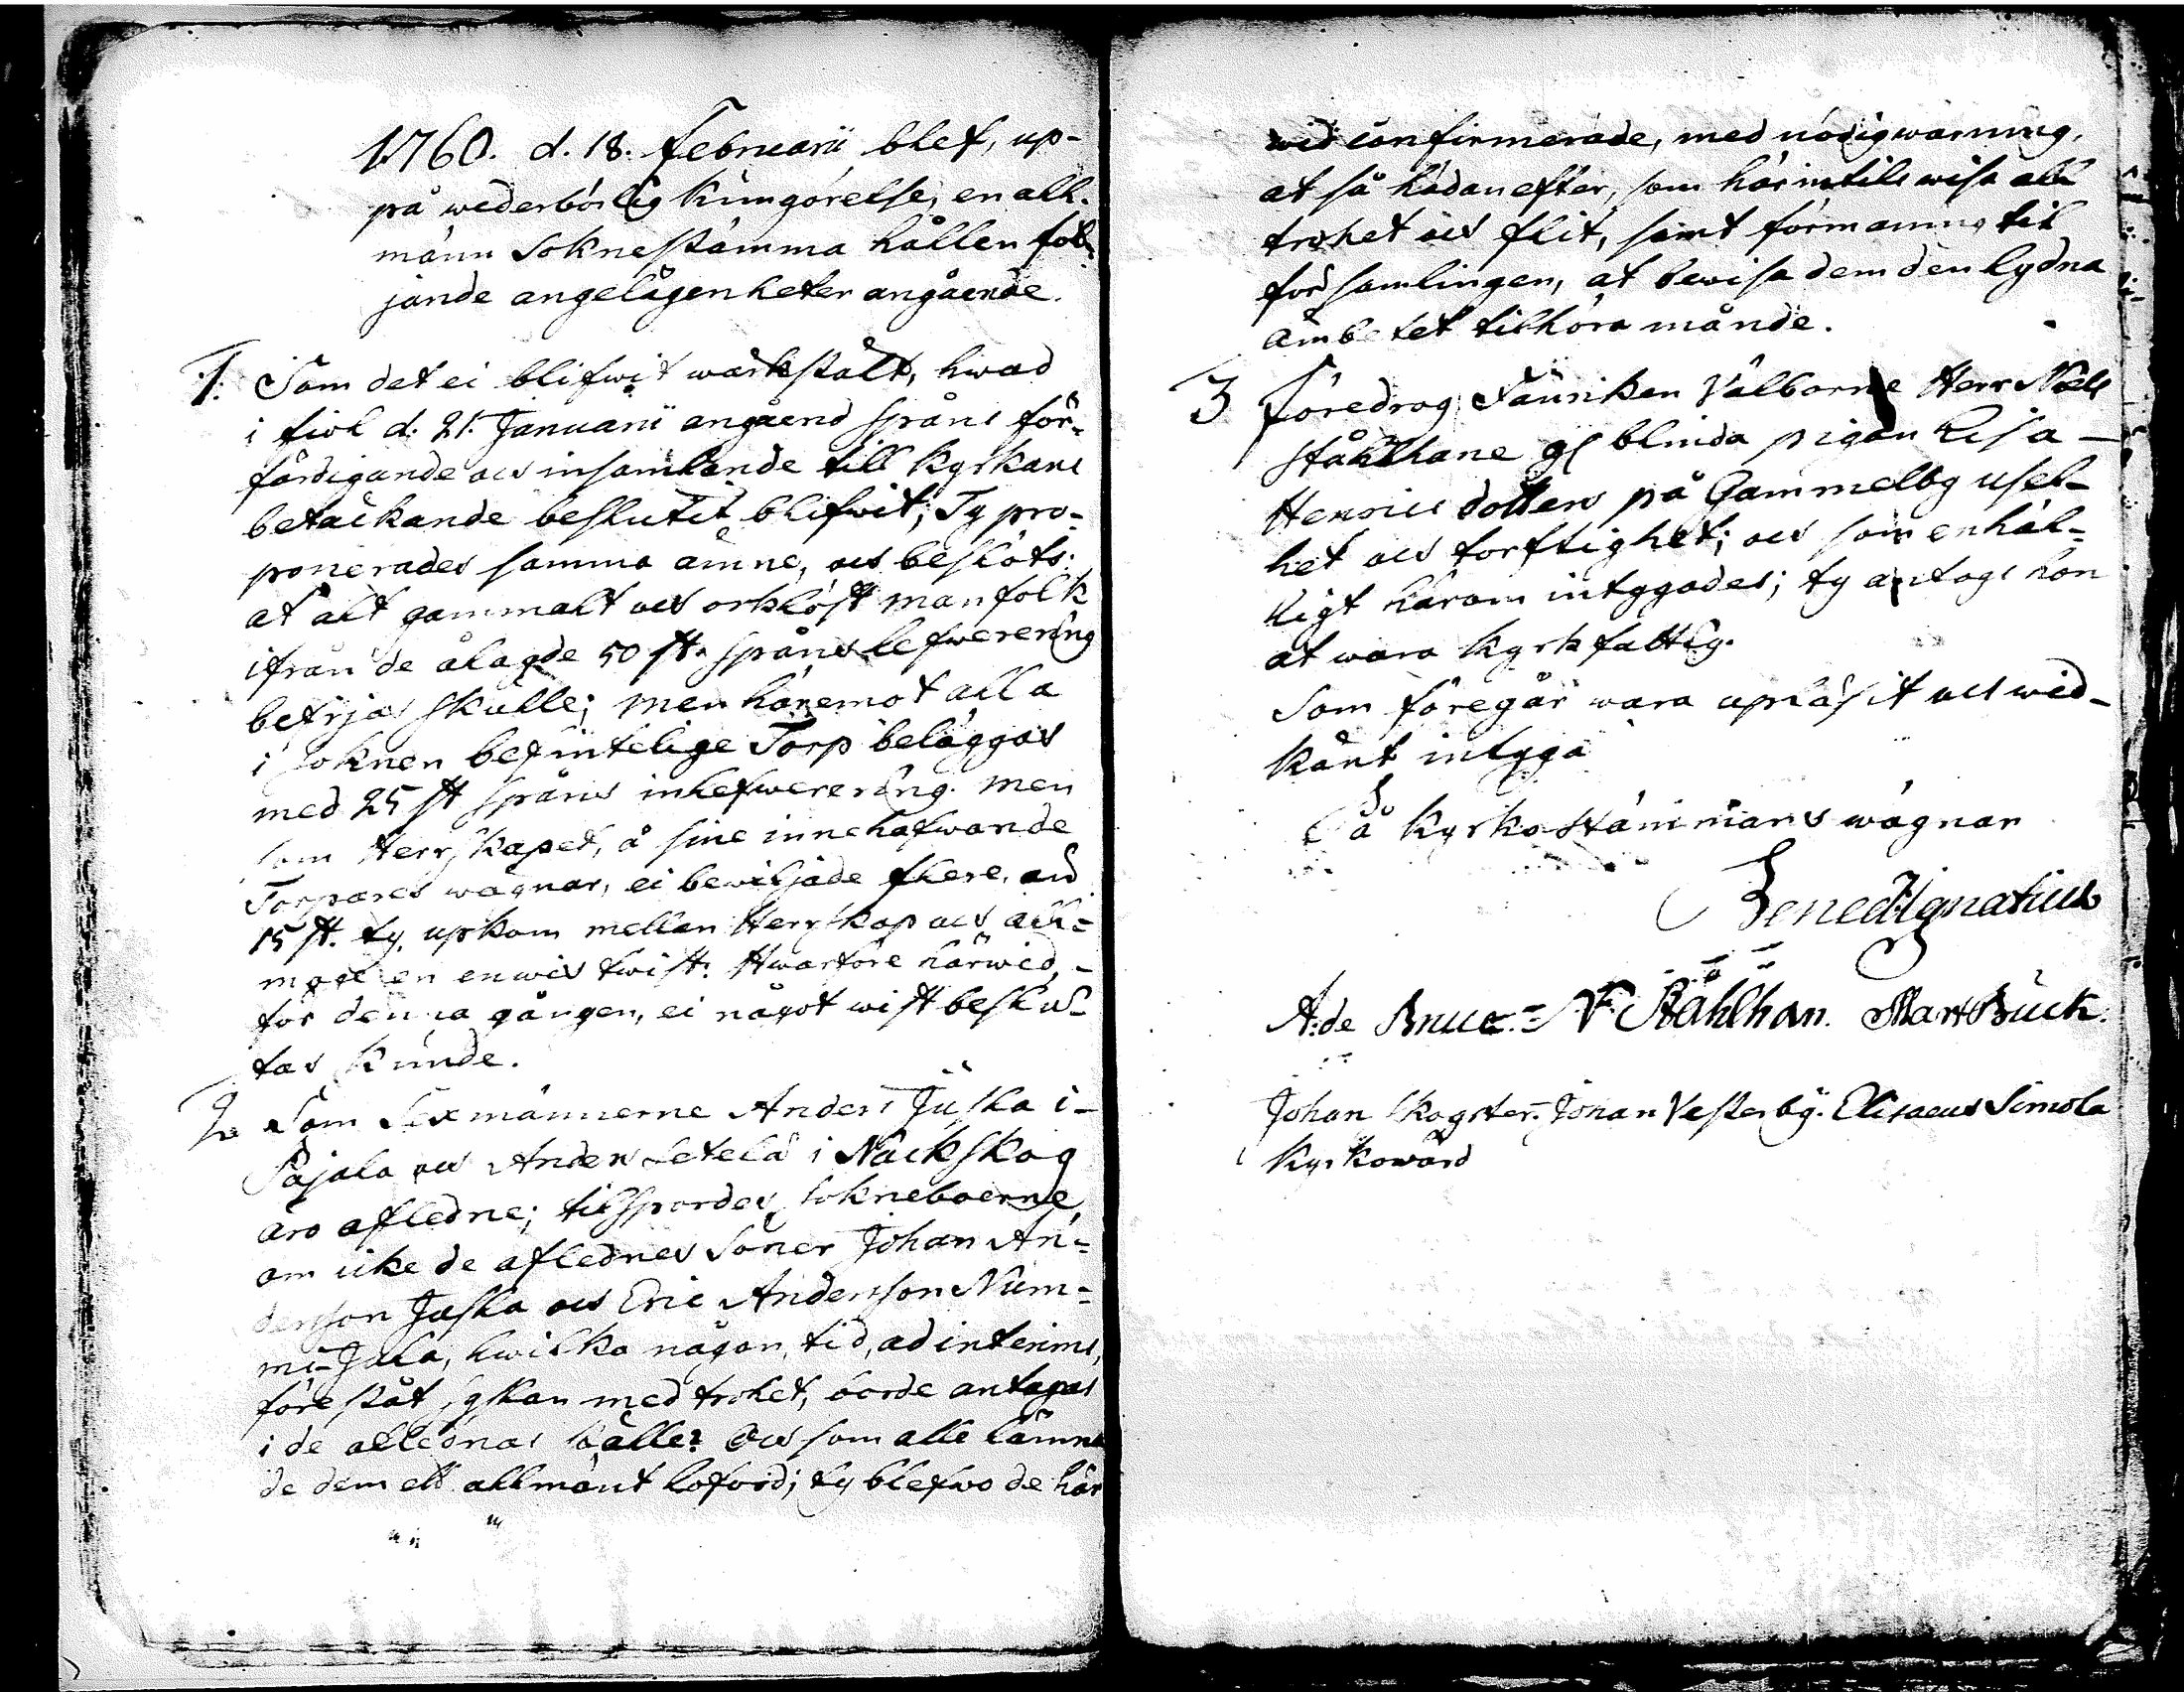 1760. d. 18. Februarii blef, up-
på wederbörlig kungörelse, en all-
männ Soknestämma hållen föl-
jande angelägenheter angående.
1. Som det ei blifwit wärkstält, hwad
i fiol d. 21. Januarii angåend spåns för-
färdigande och insamlande till kyrkans
betäckande beslutit blifwit; Ty pro-
ponerades samma ämne, och beslöts:
at alt gammalt och orklöst manfolk
ifrån de ålagde 50 st. spåns lefwerering
befrjas skulle; men häremot alla
i soknen befintelige Torp beläggas
med 25 st spåns inlefwerering. Men
som Herrskapet, å sine innehafwande
Torpares wägnar, ei beviljade flere, än
15 st. ty upkom mellan Herrskap och all-
mogen en enwis twist. Hwarföre härwid,
för denna gången, ei något wist beslu-
tas kunde.
2. Som Sexmännerne Anders Juska i
Pajala och Anders Setelä i Näckskog
äro afledne; tilspordes sokneboerne,
om icke de aflednes Söner Johan An-
dersson Juska och Eric Andersson Num-
mi-Jala, hwilka någon tid, ad interims,
föreståt syslan med trohet, borde antagas
i de aflednas ställe? Och som alle lämna
de dem ett allmänt loford; ty blefwo de här
wid confirmerade, med nödig warning,
at så hädanefter, som härintils wisa all
trohet och flit, samt förmaning til
församlingen, at bewisa dem den lydna
ämbetet tilhöra månde.
3 Föredrog Fänriken Välborne Herr Nils
Stålhane gl blinda pigan Lisa
Henrics dotters på Gammelby usel-
het och torftighet; och som enhäl-
ligt härom intygades; ty antogs hon
at wara kyrkfattig.
Som föregår wara upläsit och wid-
känt intyga
På kyrkostämmans wägnar
Bened: Ignatius
A: de Bruce. N: Ståhlhan. Mart Bück.
Johan Skogster. Johan Vesterby. Elisaeus Simola
Kyrkowärd